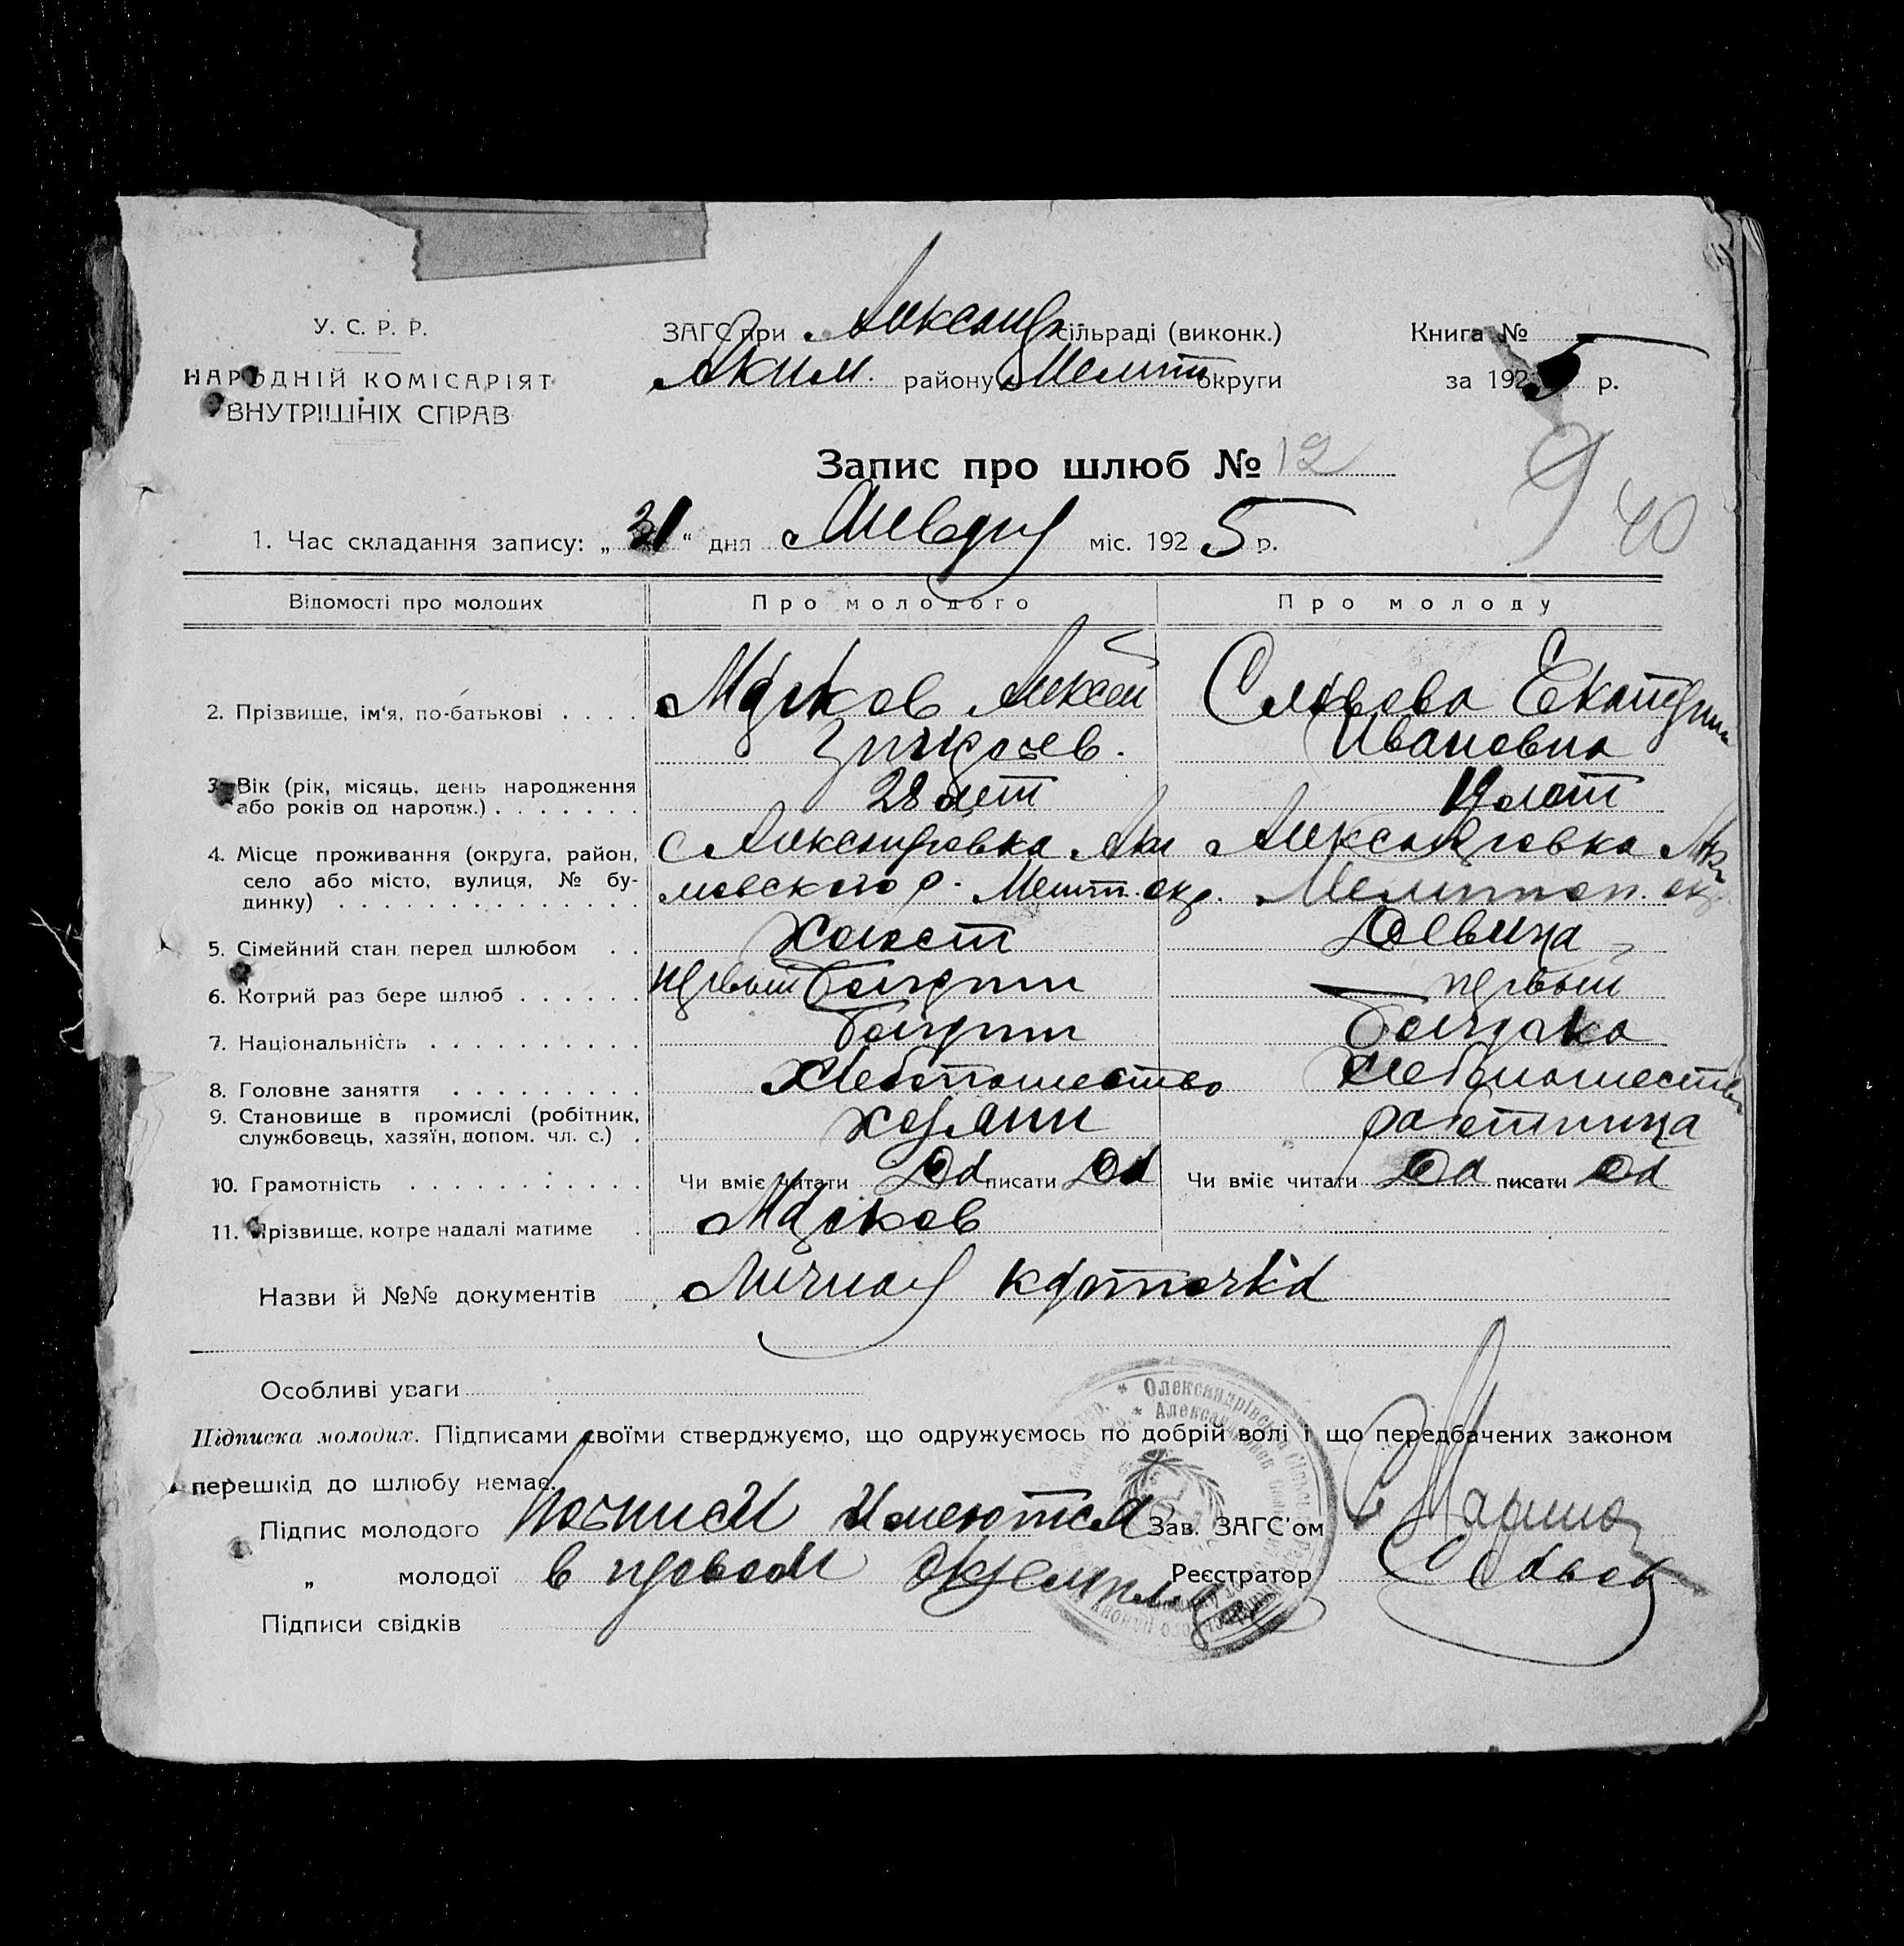 У. С. Р. Р.
НАРОДНІЙ КОМІСАРІЯТ
ВНУТРІШНІХ СПРАВ
ЗАГС при Александр сільраді (виконк.)
Аким. району Мелит округи
Книга №
за 1925 р.
Запис про шлюб № 12
9 40
1. Час складання запису: „31“ дня Январу міс. 1925 р.
Відомості про молодих Про молодого Про молоду
2. Прізвище, ім‘я, по-батькові Марков Алексей
Екатерина
Ивановна
3. Вік (рік, місяць, день народження
або років од народж.) 28 лет 19 лет
4. Місце проживання (округа, район, с Александровка Аки Александровка Аки
село або місто, вулиця, № бу- мовского р. Мелит. окр. Мелитоп. окр.
динку)
5. Сімейний стан перед шлюбом Холост Девица
6. Котрий раз бере шлюб первый первый
7. Національність Болгарин Болгарка
8. Головне заняття Хлебопашество Хлебопашество
9. Становище в промислі (робітник,
службовець, хазяїн, допом. чл. с.) хозяин работница
10. Грамотність Чи вміє читати Да писати Да Чи вміє читати Да писати Да
11. Прізвище, котре надалі матиме Марков
Назви й №№ документів Личная карточка
Особливі уваги
Підписка молодих. Підписами своїми стверджуємо, що одружуємось по добрій волі і що передбачених законом
перешкід до шлюбу немає.
Підпис молодого Подписи имеются Зав. ЗАГС'ом
„ молодої в первом экземпляре Реєстратор
Підписи свідків